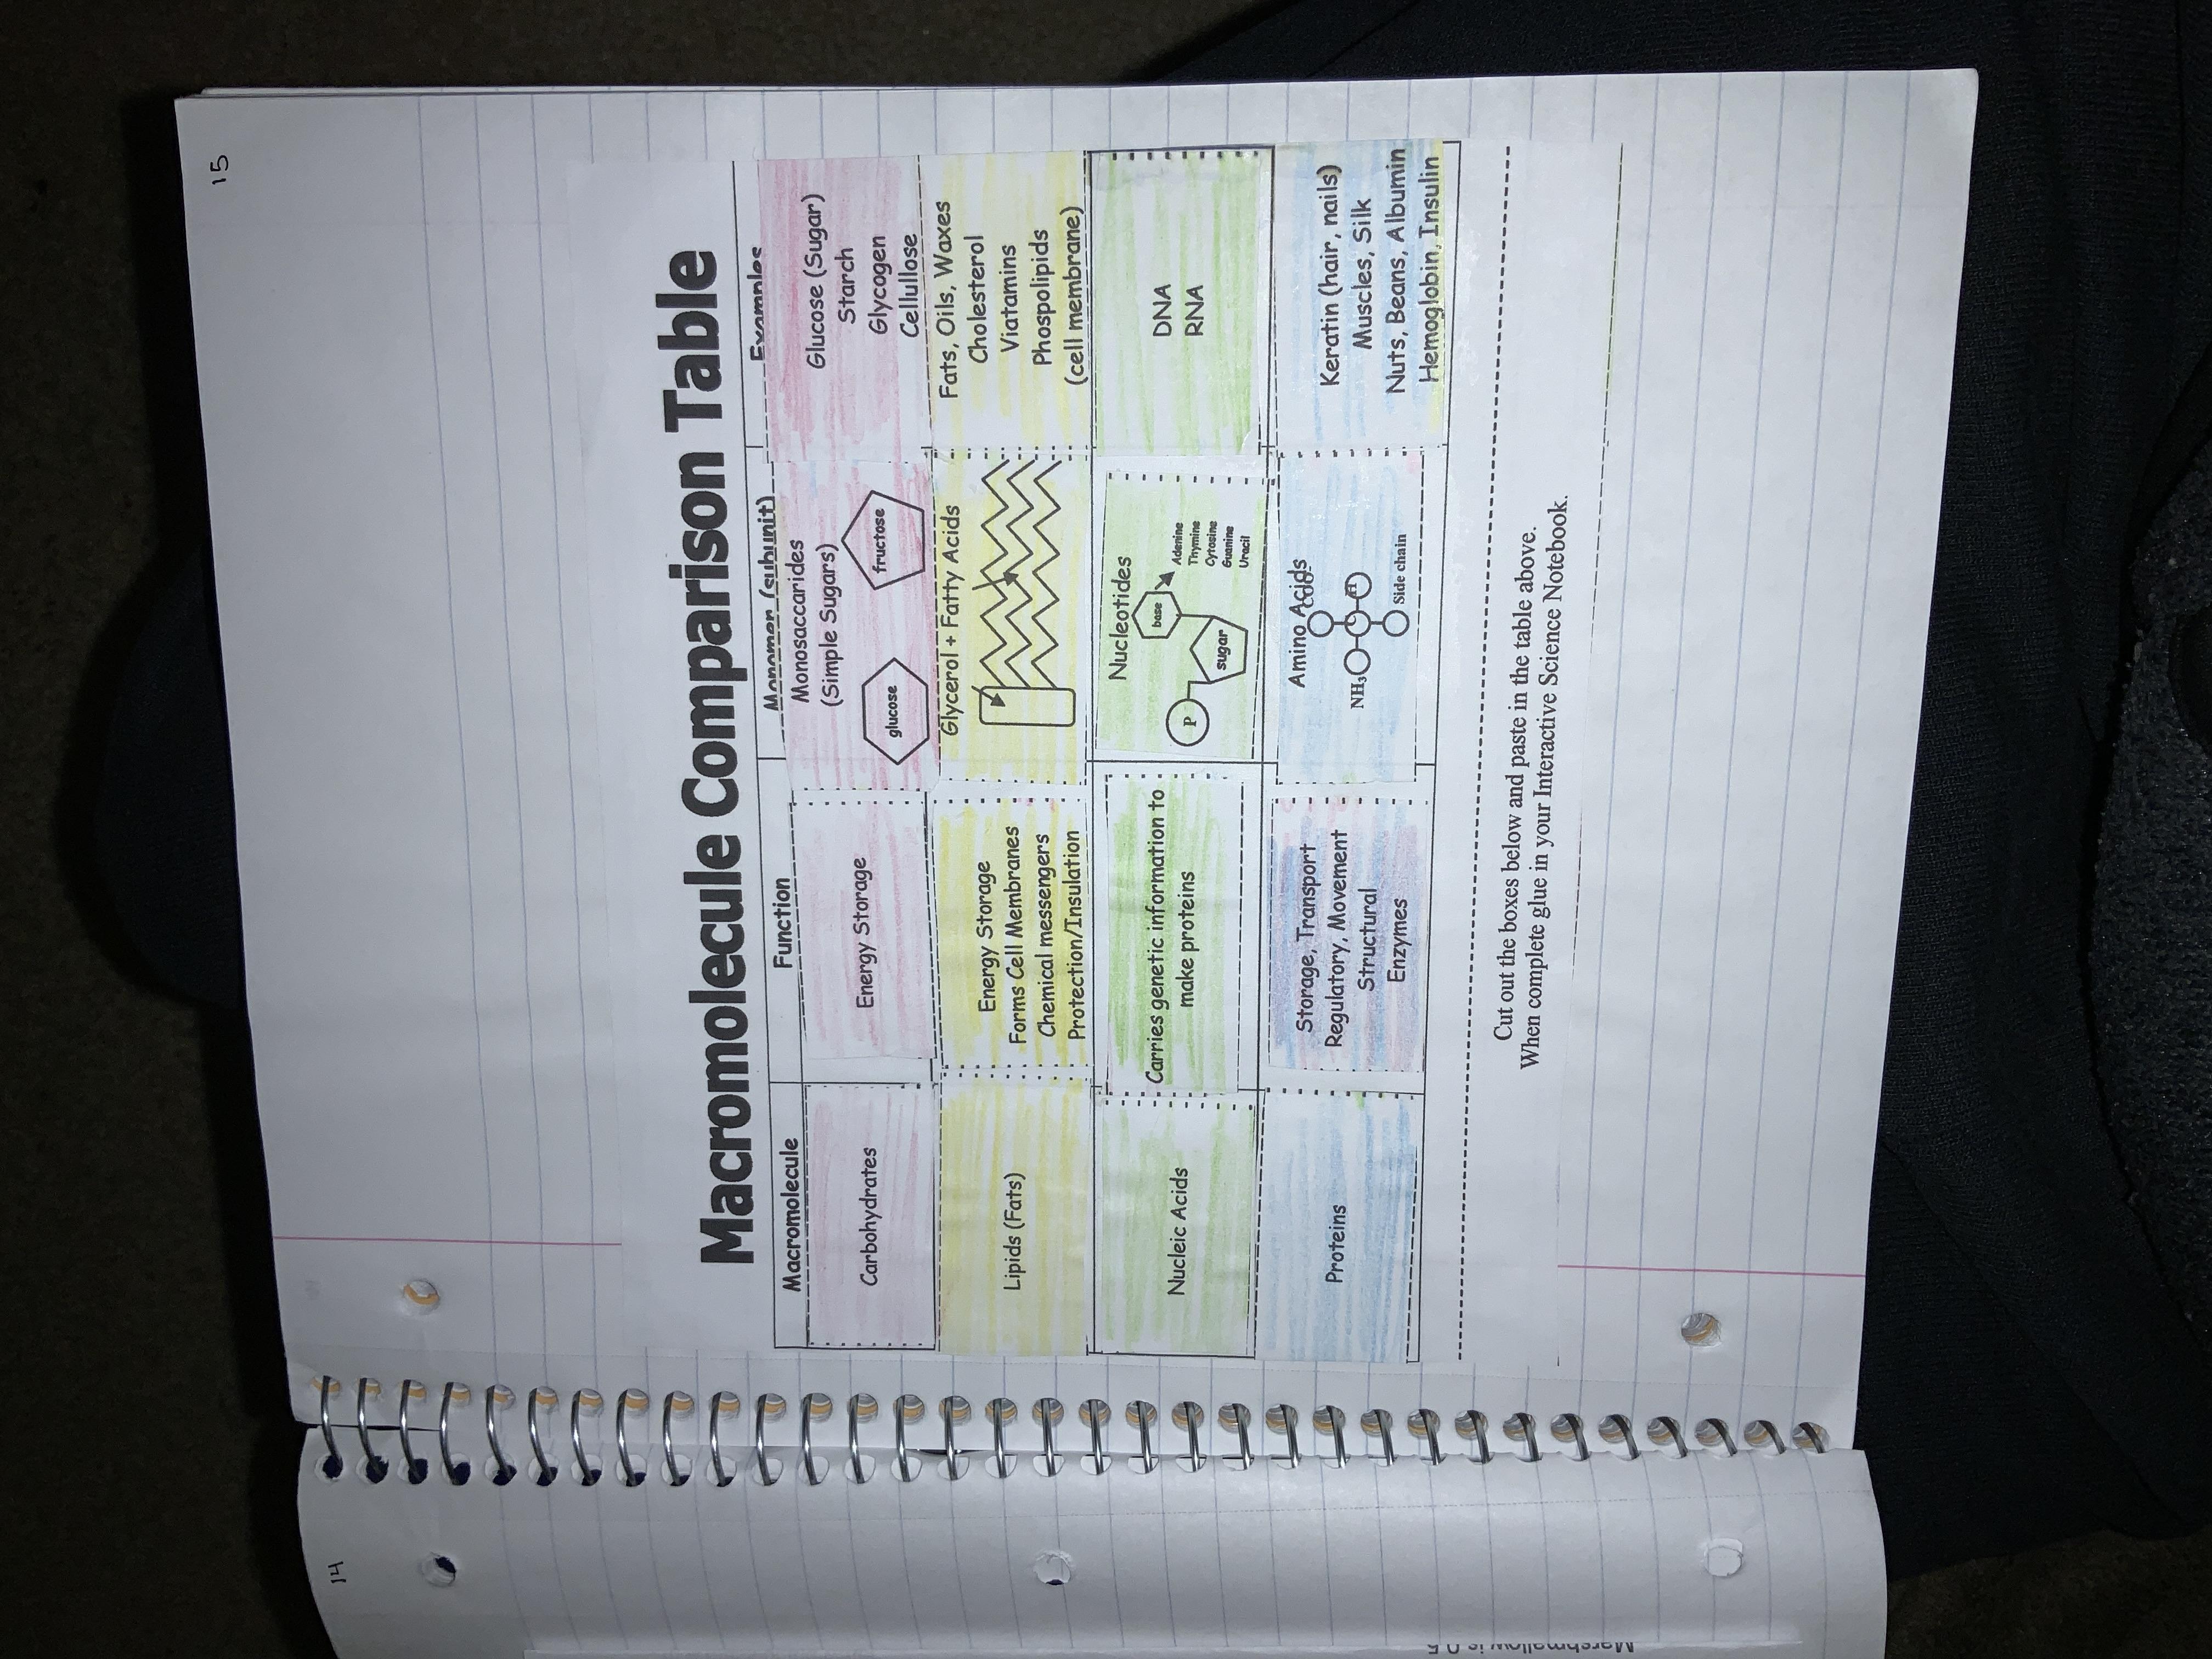 15
Macromolecule Comparison Table
Macromolecule
Function
Monomer (subunit)
Examples
Carbohydrates
Energy Storage
Monosaccarides
(Simple Sugars)
glucose
fructose
Glucose (Sugar)
Starch
Glycogen
Cellullose
Lipids (Fats)
Energy Storage
Forms Cell Membranes
Chemical messengers
Protection/Insulation
Glycerol + Fatty Acids
Fats, Oils, Waxes
Cholesterol
Viatamins
Phospolipids
(cell membrane)
Nucleic Acids
Carries genetic information to
make proteins
Nucleotides
P
sugar
base
Adenine
Thymine
Cytosine
Guanine
Uracil
DNA
RNA
Proteins
Storage, Transport
Regulatory, Movement
Structural
Enzymes
Amino Acids
NH₃
C
Side chain
Keratin (hair, nails)
Muscles, Silk
Nuts, Beans, Albumin
Hemoglobin, Insulin
Cut out the boxes below and paste in the table above.
When complete glue in your Interactive Science Notebook.
14
Marshmallow is 0.5